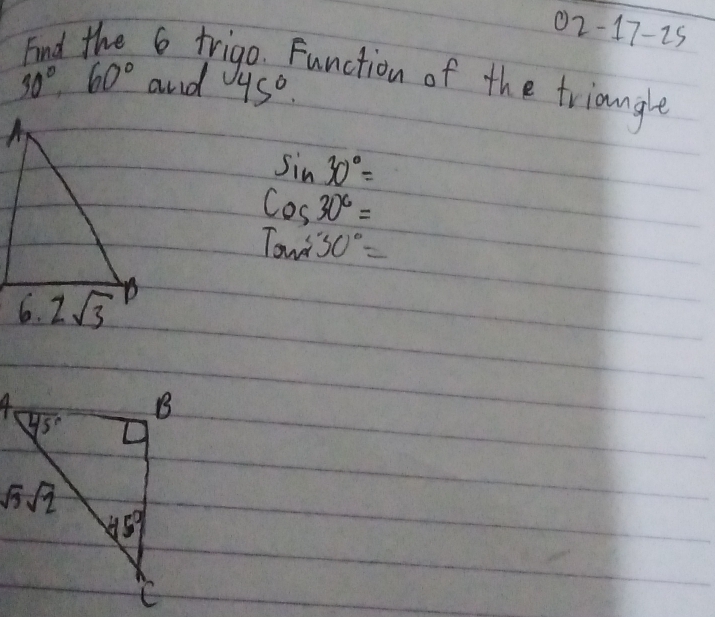 02-17-25
Find the 6 trigo. Function of the triangle
30°, 60° and 45°.
A
Sin 30° =
Cos 30° =
Tan 30° =
B
6.2√3
A
B
45°
√3√2
45°
C